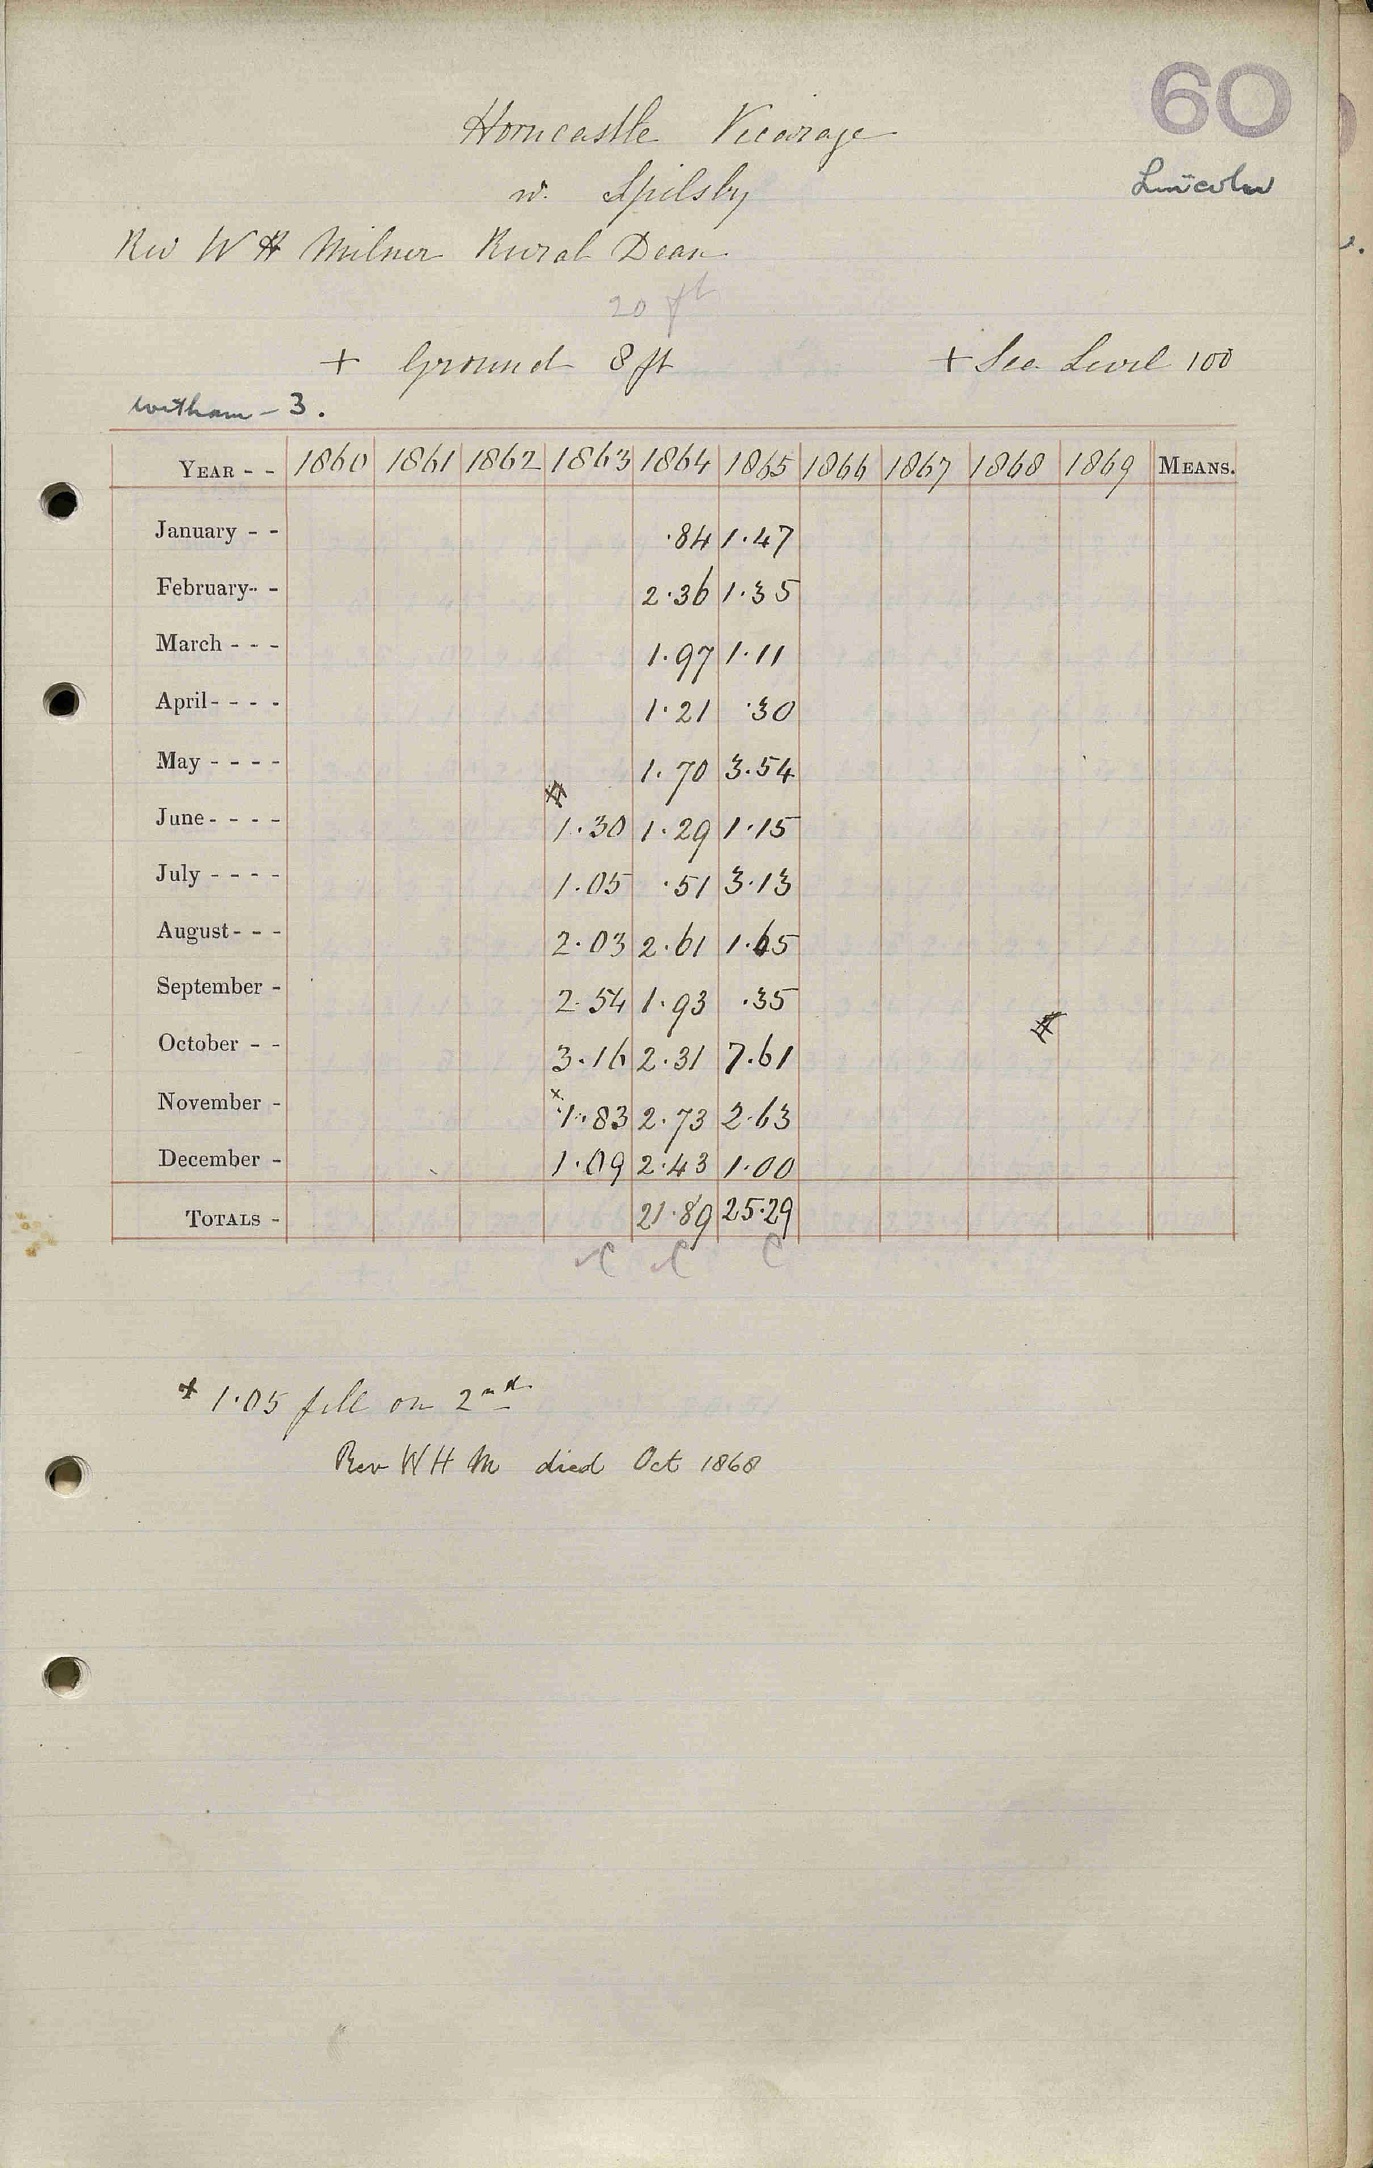 60
Lincoln
Horncastle Vicarage
n. Spilsby
Rev W H Milner Rural Dean
20 ft
+ Ground 8 ft + Sea Level 100
Witham - 3.
YEAR - - 1860 1861 1862 1863 1864 1865 1866 1867 1868 1869 MEANS.
January - - .84 1.47
February - - 2.36 1.35
March - - - 1.97 1.11
April - - - - 1.21 .30
May - - - - 1.70 3.54
June - - - - 1.30 1.29 1.15
July - - - - 1.05 .51 3.13
August - - - 2.03 2.61 1.65
September - 2.54 1.93 .35
October - - 3.16 2.31 7.61
November - x 1.83 2.73 2.63
December - 1.09 2.43 1.00
TOTALS - 21.89 25.29
C C C
x 1.05 fell on 2nd
Rev W H M died Oct 1868